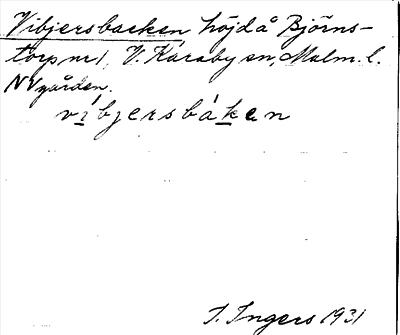 Vibjersbacken, höjd å Björns-
torp nr 1, V. Karaby sn, Malm. l.
NV gården.
víbjersbáken
I. Ingers 1931